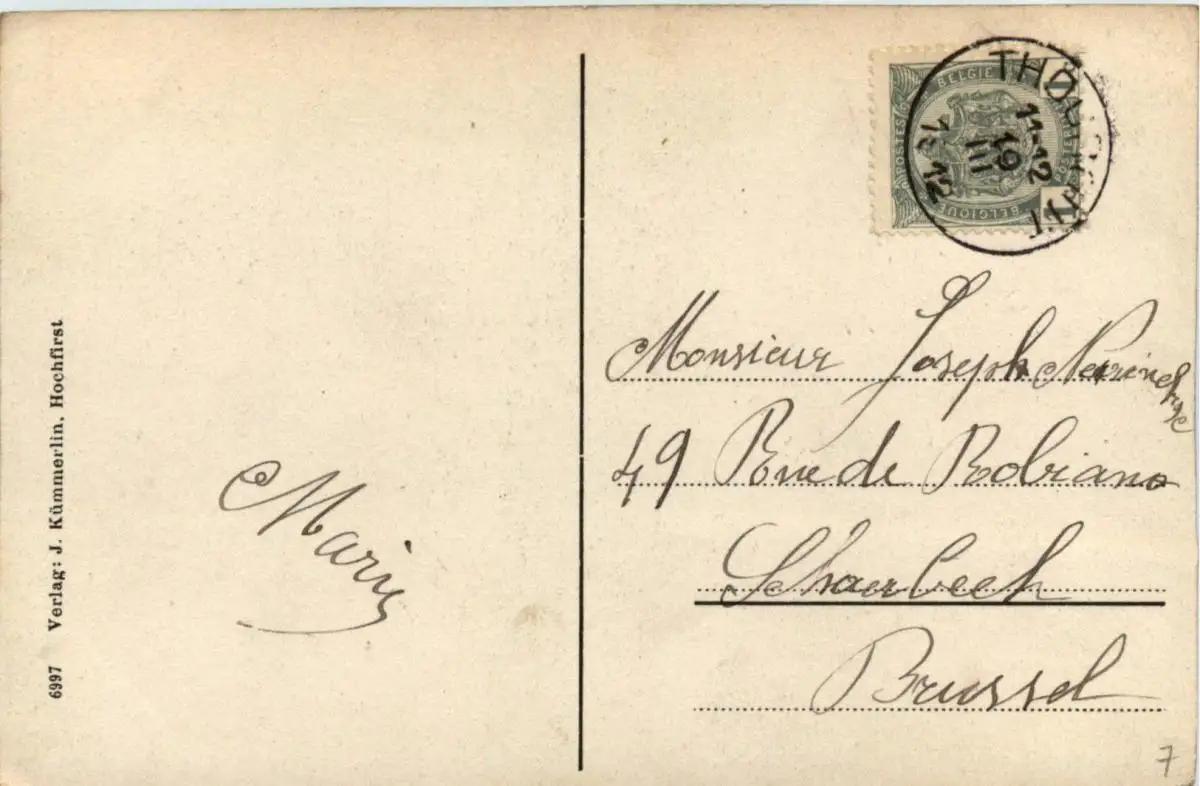 6997 Verlag: J. Kümmerlin, Hochfirst
Marie
POSTES BELGIE
BELGIQUE
1
THOUROUT
11-12
19
III
1912
Monsieur Joseph
49 Rue de Robiano
Schaerbeek
Brussel
7